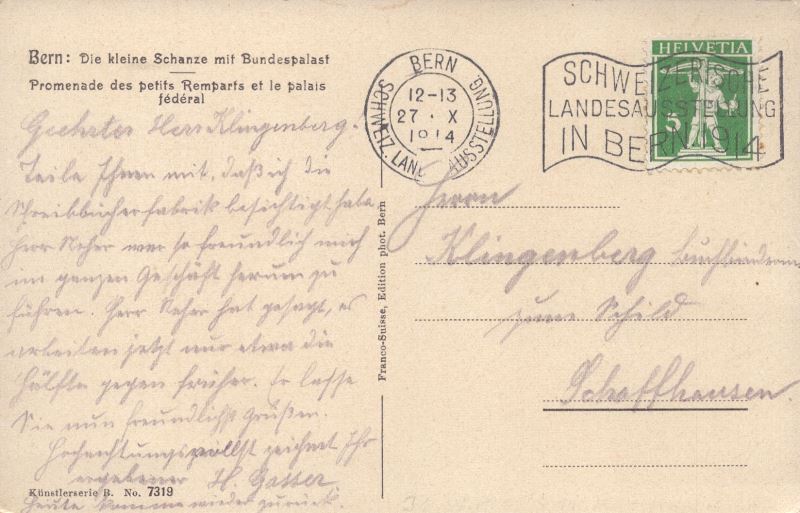 Bern: Die kleine Schanze mit Bundespalast
Promenade des petits Remparts et le palais
fédéral
Geehrter Herr Klingenberg!
Teile Ihnen mit, daß ich die
Schreibbücherfabrik besichtigt habe.
Herr Neher war so freundlich mich
im ganzen Geschäft herum zu
führen. Herr Neher hat gesagt, es
arbeiten jetzt nur etwa die
Hälfte gegen früher. Er lasse
Sie nun freundlichst Grüßen.
Hochachtungsvollst zeichnet Ihr
ergebener H. Gasser.
Heute komme wieder zurück.
Künstlerserie B. No. 7319
Franco-Suisse, Edition phot. Bern
BERN
12-13
27 · X
1914
SCHWEIZ. LANDESAUSSTELLUNG
SCHWEIZERISCHE
LANDESAUSSTELLUNG
IN BERN 1914
HELVETIA
5
Herrn
Klingenberg Buchbinderei
zum Schild
Schaffhausen.